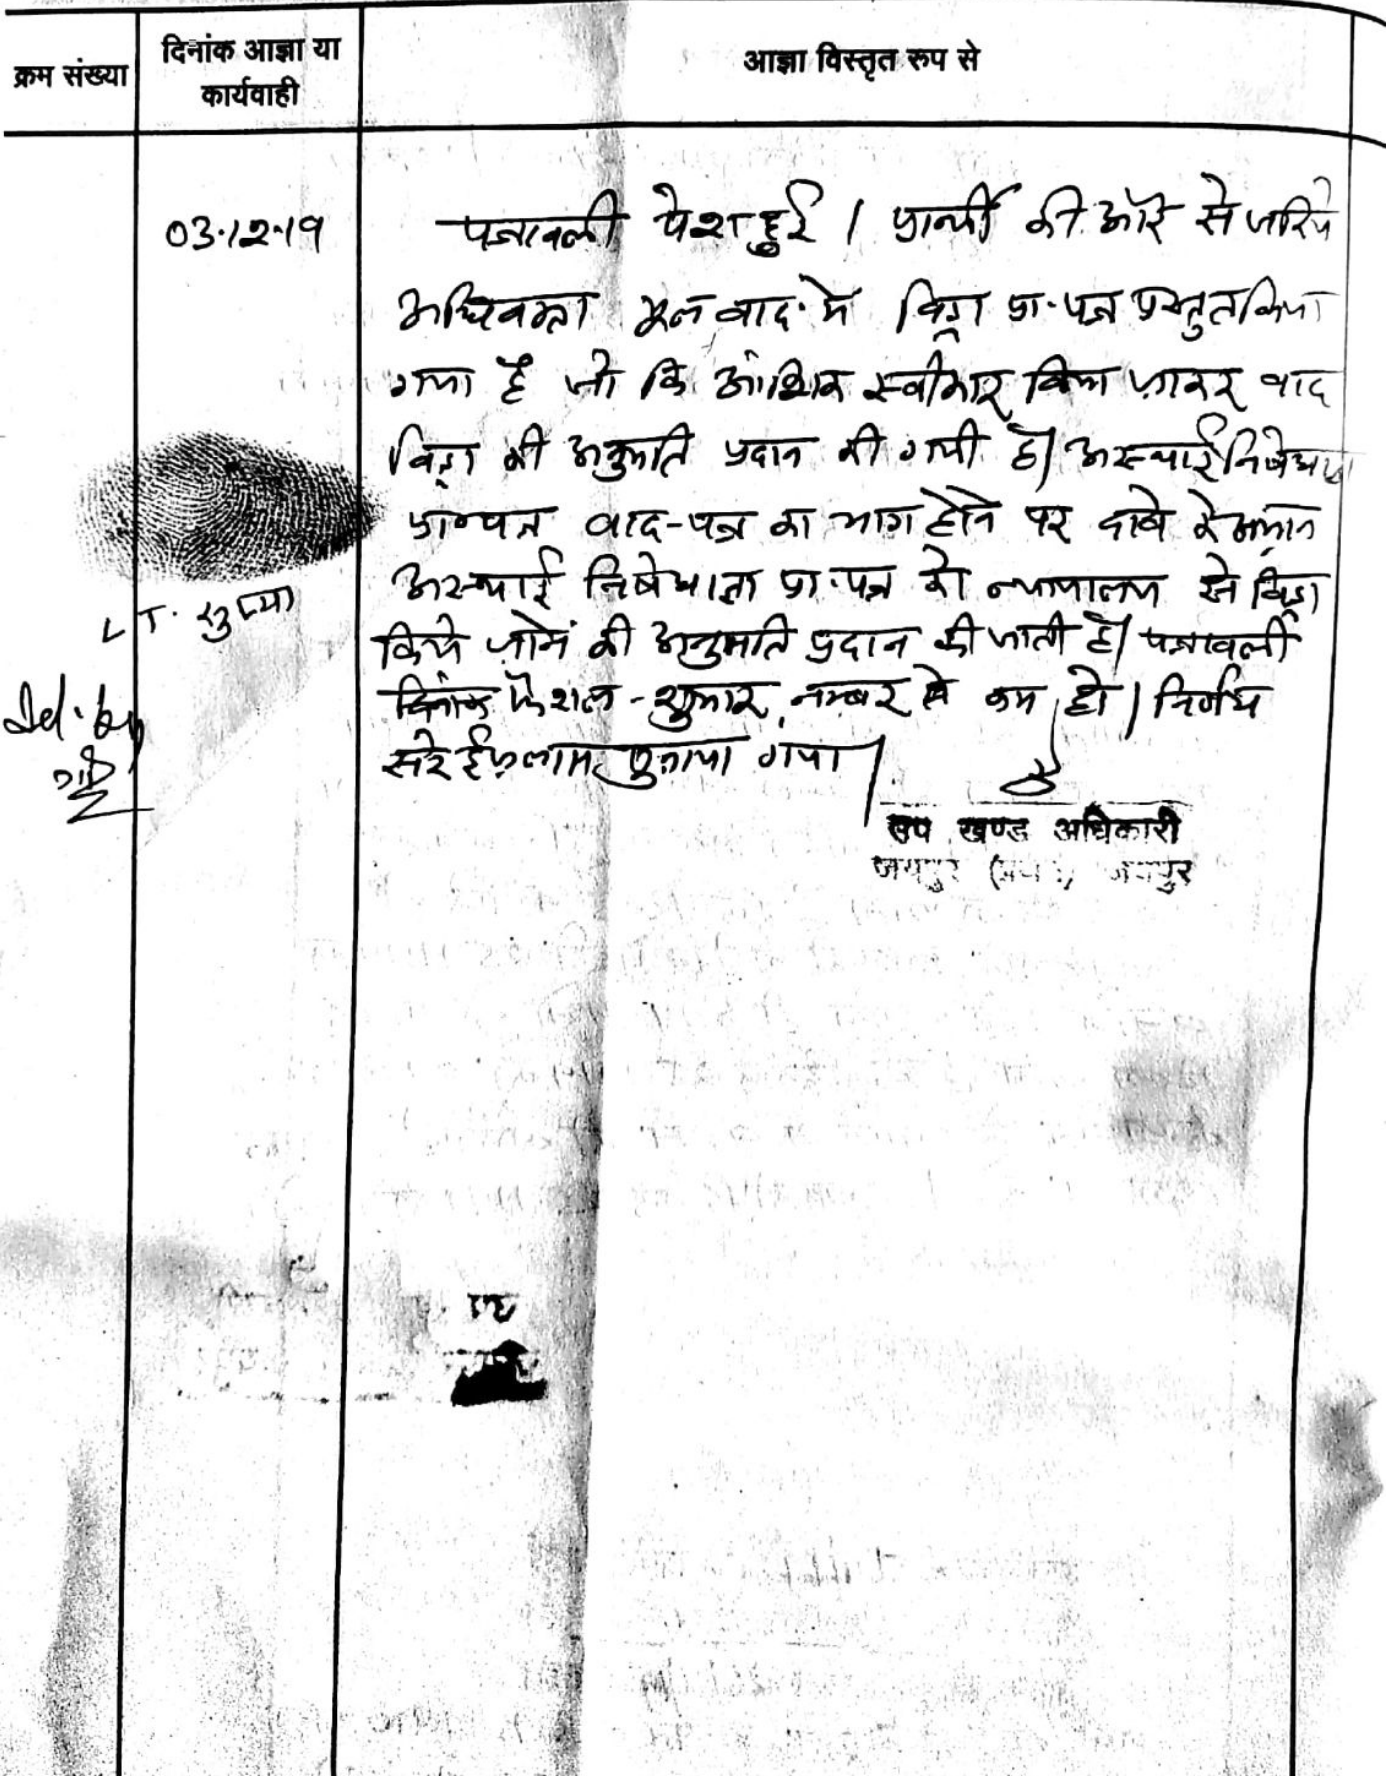 क्रम संख्या
दिनांक आज्ञा या
कार्यवाही
आज्ञा विस्तृत रूप से
03.12.19
पत्रावली पेश हुई । प्रार्थी की ओर से जरिये
अधिवक्ता मूल वाद में विड्रा प्रा.पत्र प्रस्तुत किया
गया है जो कि आंशिक स्वीकार किया जाकर वाद
विड्रा की अनुमति प्रदान की गयी है। अस्थाई निषेधाज्ञा
प्रा०पत्र वाद-पत्र का भाग होने पर दावे के समान
अस्थाई निषेधाज्ञा प्रा.पत्र को न्यायालय से विड्रा
किये जाने की अनुमति प्रदान की जाती है। पत्रावली
फैशल-शुमार नम्बर से कम हो । निर्णय
सरे ईजलास सुनाया गया।
उप खण्ड अधिकारी
जयपुर जयपुर